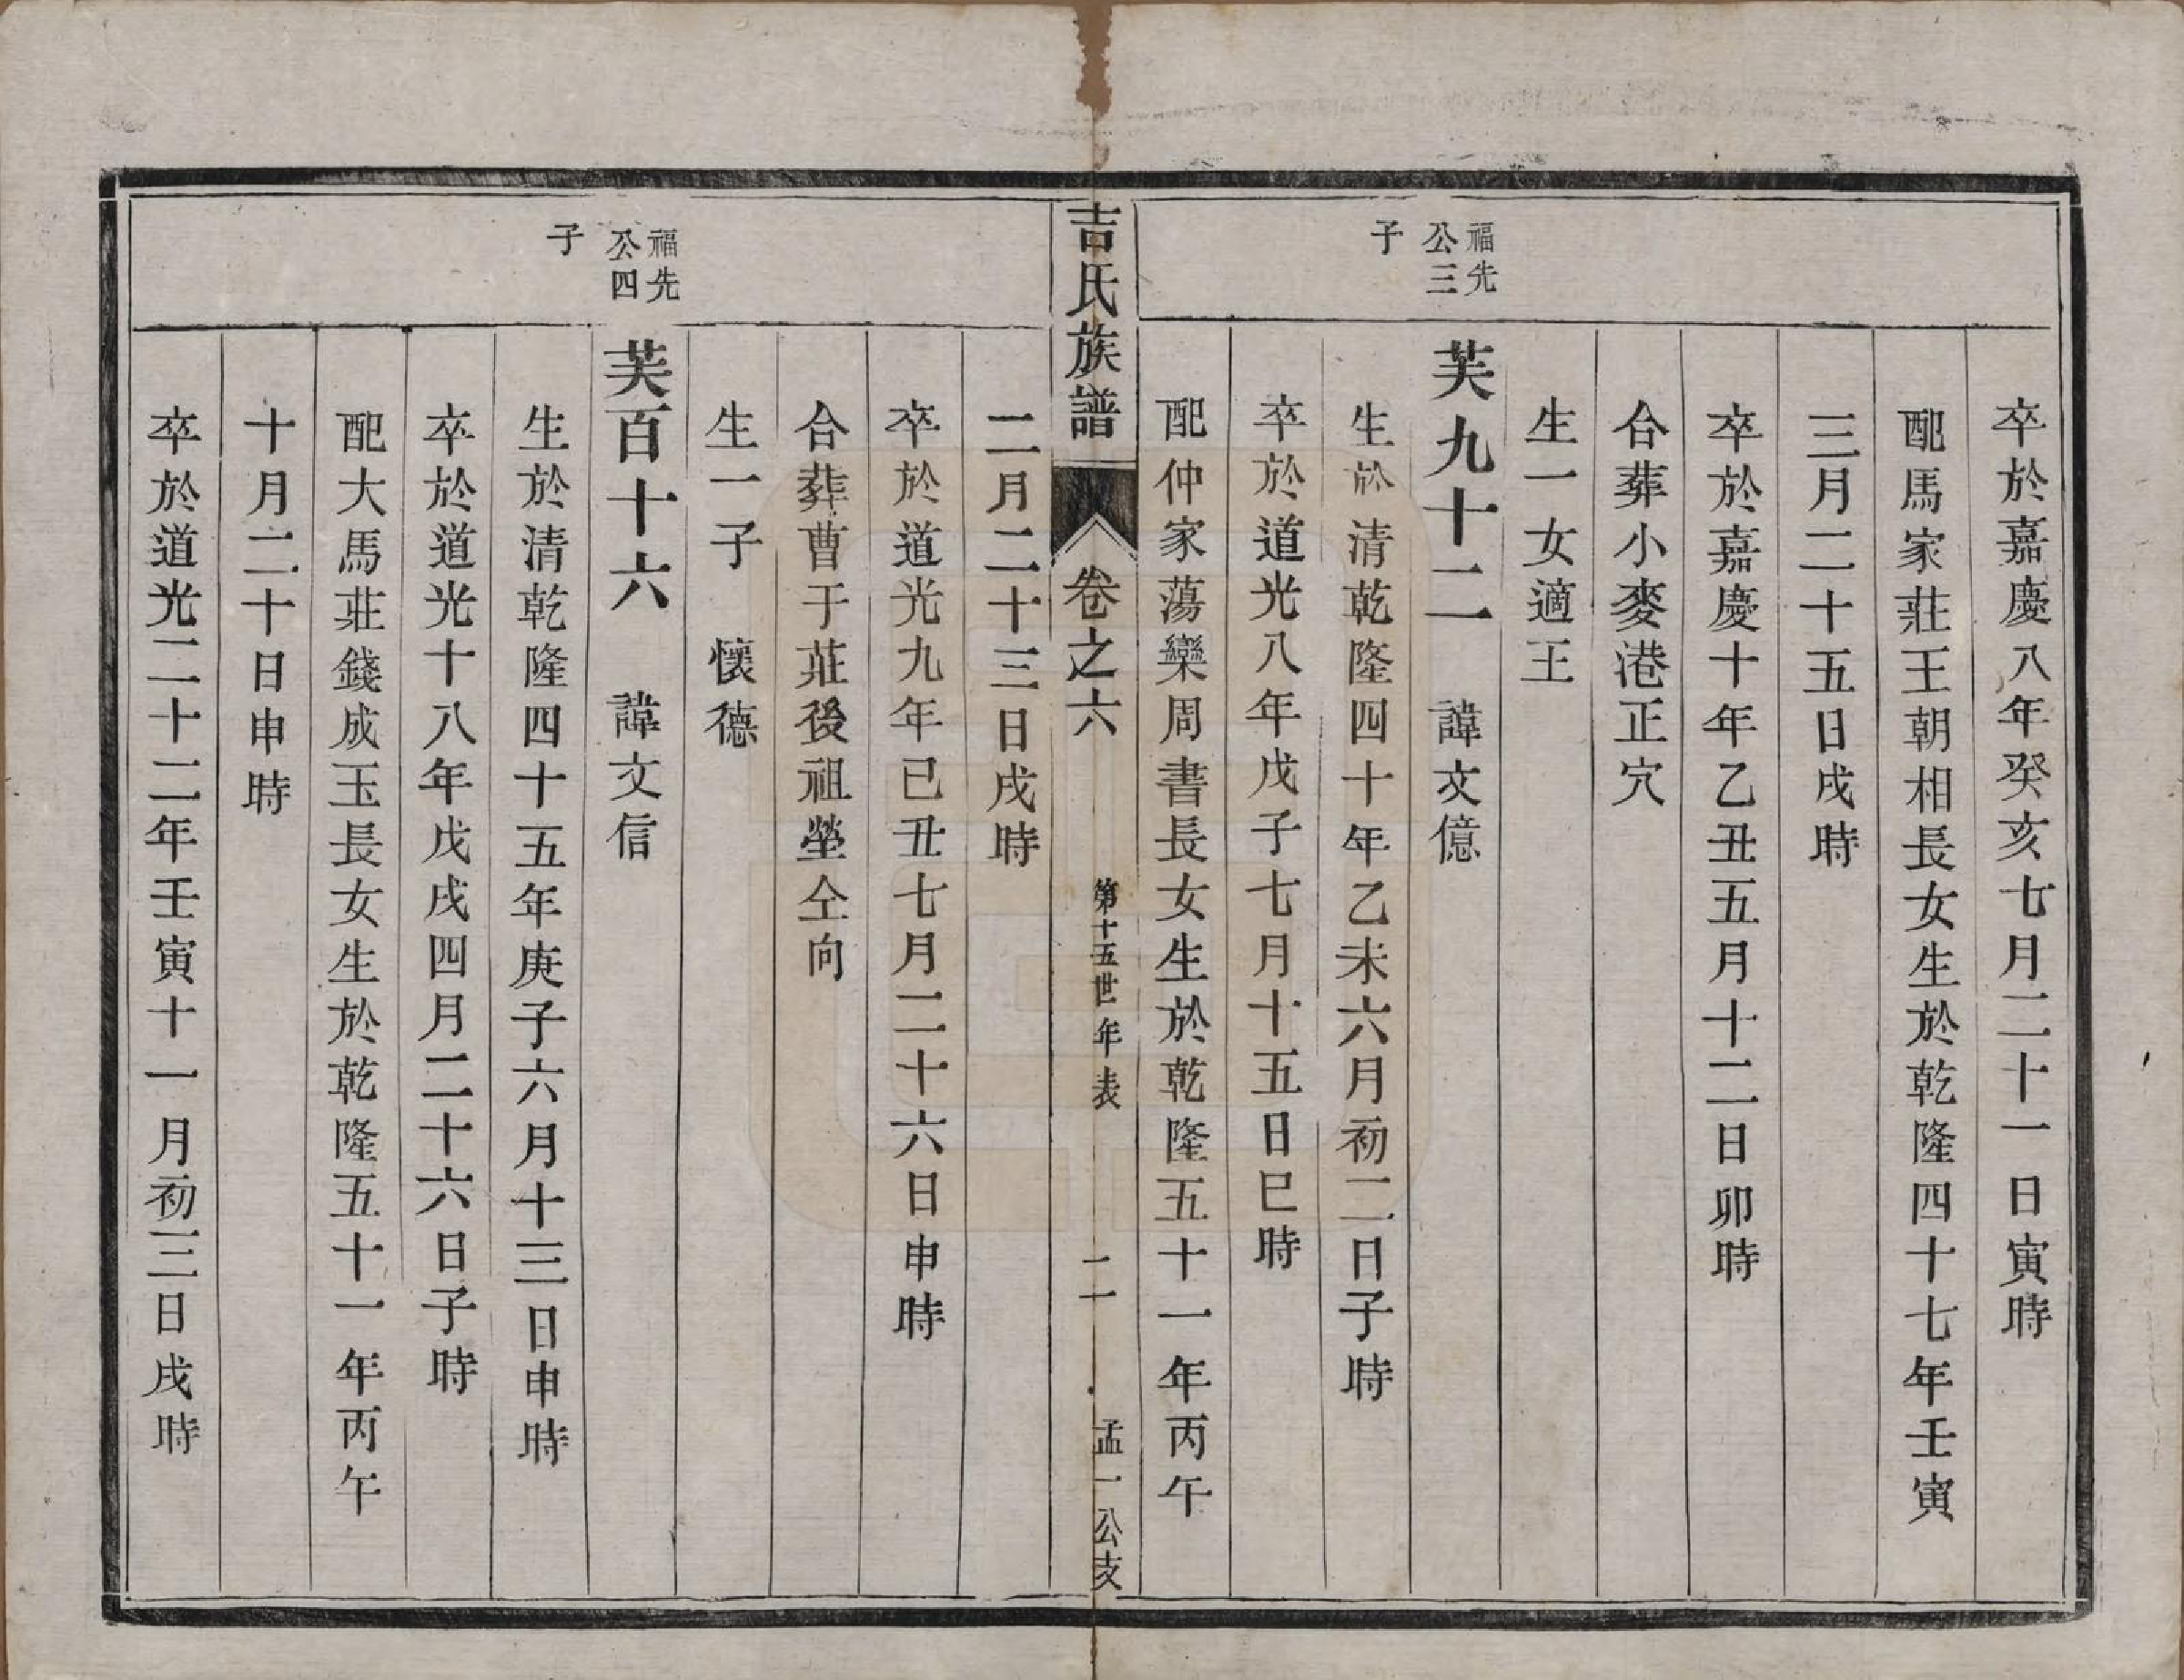 卒於嘉慶八年癸亥七月二十一日寅時
配馬家莊王朝相長女生於乾隆四十七年壬寅
三月二十五日戌時
卒於嘉慶十年乙丑五月十二日卯時
合葬小麥港正穴
生一女適王
福先公三子
芙九十二　諱文億
生於清乾隆四十年乙未六月初二日子時
卒於道光八年戊子七月十五日巳時
配仲家蕩欒周書長女生於乾隆五十一年丙午
吉氏族譜　卷之六　第十五世年表　二　孟一公支
二月二十三日戌時
卒於道光九年已丑七月二十六日申時
合葬曹于莊後祖塋仝向
生一子　懷德
福先公四子
芙百十六　諱文信
生於清乾隆四十五年庚子六月十三日申時
卒於道光十八年戊戌四月二十六日子時
配大馬莊錢成玉長女生於乾隆五十一年丙午
十月二十日申時
卒於道光二十二年壬寅十一月初三日戌時